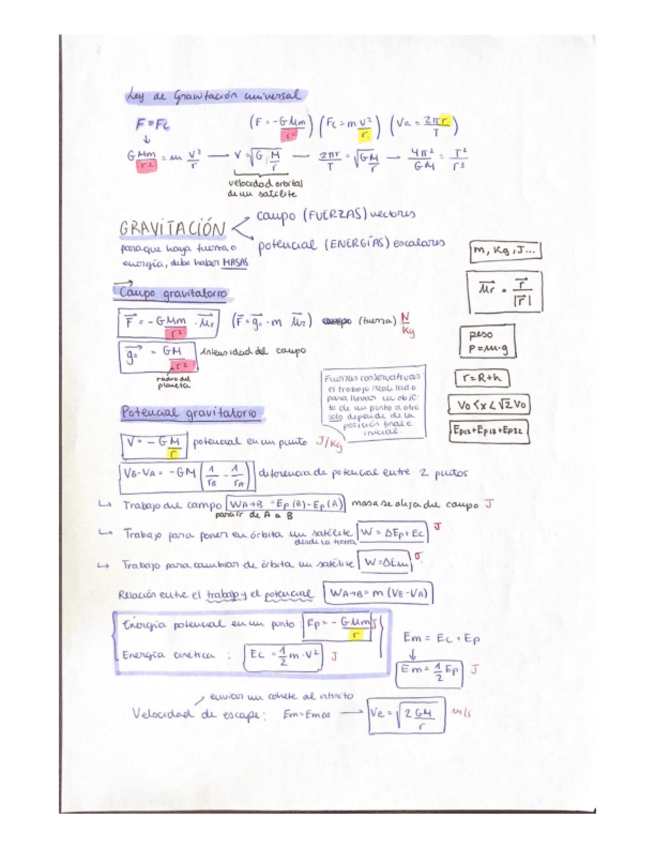 Ley de Gravitación universal
F = Fc (F = -G Mm/r²) (Fc = m v²/r) (Va = 2πr/T)
↓
G Mm/r² = m v²/r → V = √(G M/r) — 2πr/T = √(GM/r) → 4π²/GM = T²/r³
velocidad orbital
de un satélite
GRAVITACIÓN
campo (FUERZAS) vectores
potencial (ENERGÍAS) escalares
para que haya fuerza o
energía, debe haber MASAS
m, Kg, J...
Campo gravitatorio
u⃗r = r⃗/|r⃗|
F⃗ = -G Mm/r² · u⃗r (F⃗ = g⃗o · m u⃗r) (fuerza) N/Kg
peso
P = m·g
g⃗o = GM/r² intensidad del campo
radio del
planeta
r = R+h
Fuerzas conservativas
el trabajo realizado
para llevar un obje
to de un punto a otro
solo depende de la
posición final e
inicial
Vo < x < √2 Vo
Ep12 + Ep13 + Ep32
Potencial gravitatorio
V = -G M/r potencial en un punto J/Kg
VB-VA = -GM (1/rB - 1/rA) diferencia de potencial entre 2 puntos
↳ Trabajo del campo WA→B = Ep(B) - Ep(A) masa se aleja del campo J
para ir de A a B
↳ Trabajo para poner en órbita un satélite W = ΔEp + Ec J
desde la tierra
↳ Trabajo para cambiar de órbita un satélite W = ΔEm J
Relación entre el trabajo y el potencial WA→B = m (VB - VA)
Energía potencial en un punto: Ep = - GMm/r J
Energía cinética : Ec = 1/2 m·V² J
Em = Ec + Ep
↓
Em = 1/2 Ep J
enviar un cohete al infinito
Velocidad de escape: Em = Em∞ → Ve = √(2GM/r) m/s